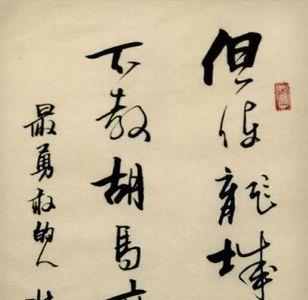 但使龍城
不教胡馬
最勇敢的人